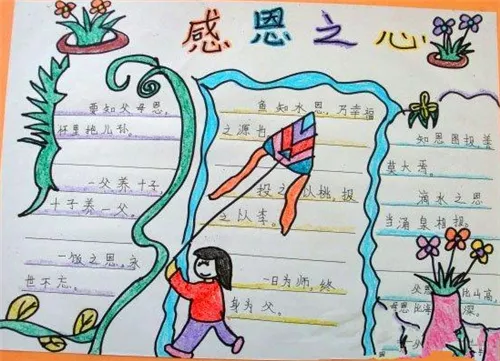 感恩之心
要知父母恩，
怀里抱儿孙。
一父养十子，
十子养一父。
一饭之恩，永
世不忘。
鱼知水恩，乃幸福
之源也
投之以桃，报
之以李。
一日为师，终
身为父。
知恩图报善
莫大焉。
滴水之恩
当涌泉相报。
比山高
母恩比海深。